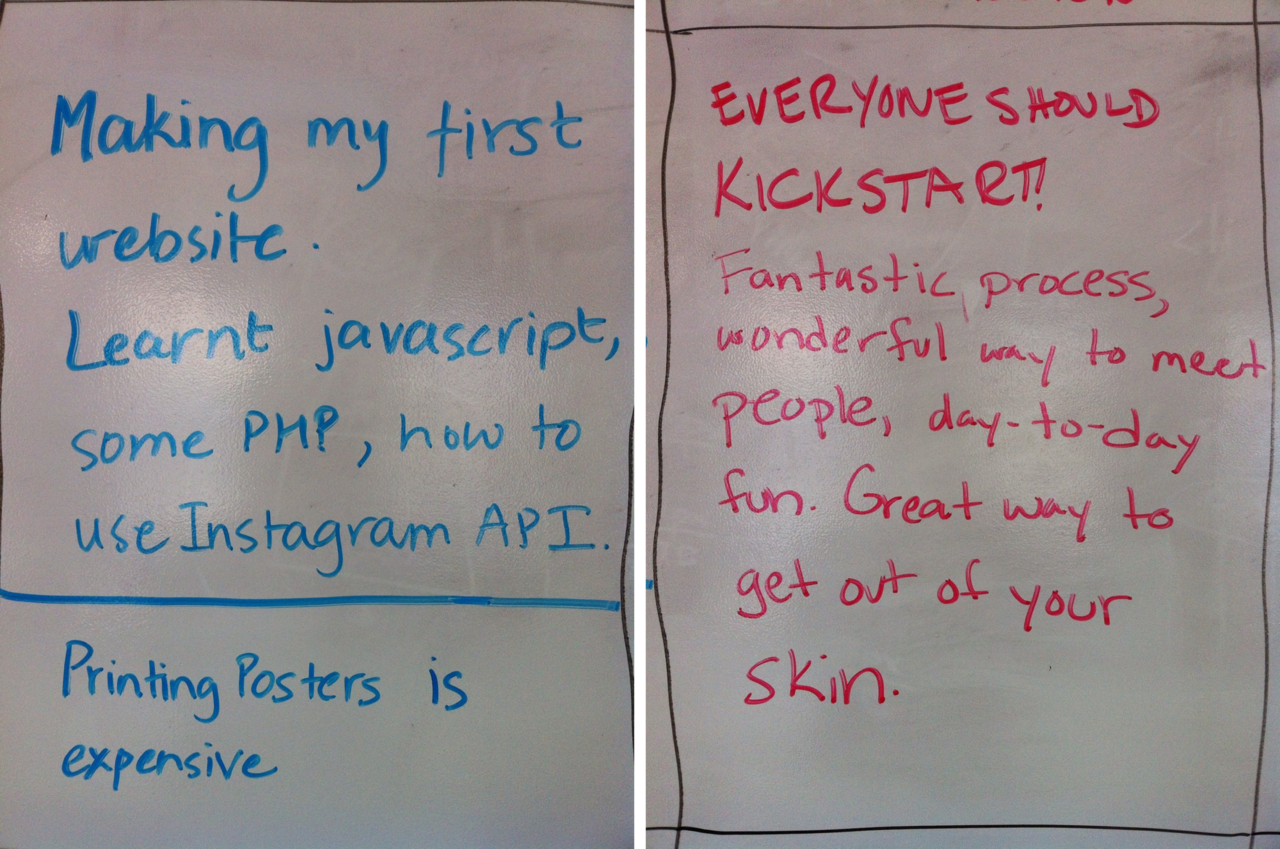 Making my first
website.
Learnt javascript,
some PHP, how to
use Instagram API.
Printing Posters is
expensive
EVERYONE SHOULD
KICKSTART!
Fantastic, process,
wonderful way to meet
people, day-to-day
fun. Great way to
get out of your
skin.